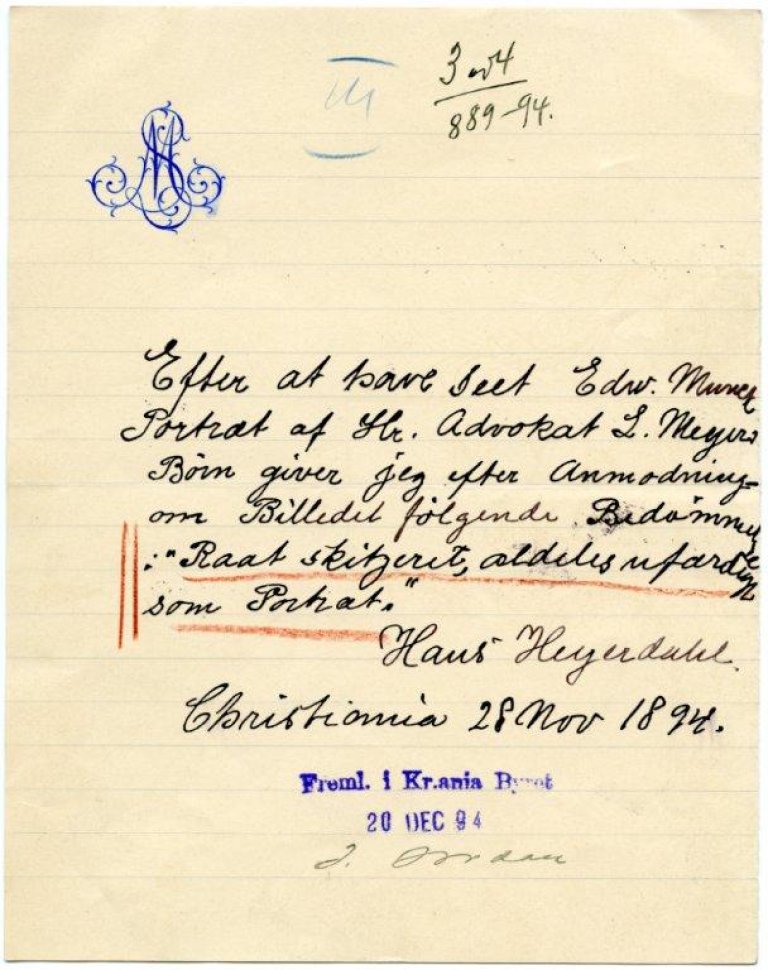 3
889-94.
Efter at have seet Edv. Munch
Portræt af Hr. Advokat L. Meyers
Børn giver jeg efter Anmodning
om Billedet følgende Bedømmelse
: "Raat skitzeret, aldeles ufærdig
som Portræt."
Hans Heyerdahl.
Christiania 28 Nov 1894.
Freml. i Kr.ania Byret
20 DEC 94